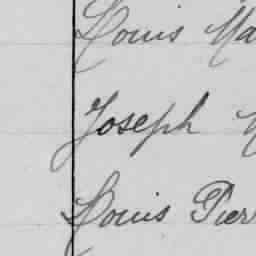 Louis Ma
Joseph
Louis Pier